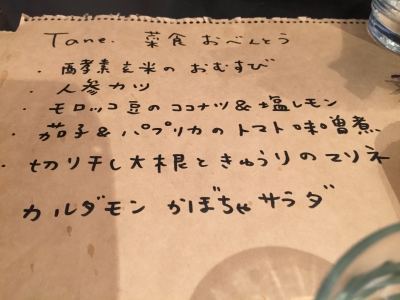 Tane. 菜食 おべんとう
・酵素玄米の おむすび
・人参カツ
・モロッコ豆の ココナツ&塩レモン
・茄子&パプリカの トマト味噌煮
・切り干し大根ときゅうりのマリネ
カルダモン かぼちゃサラダ